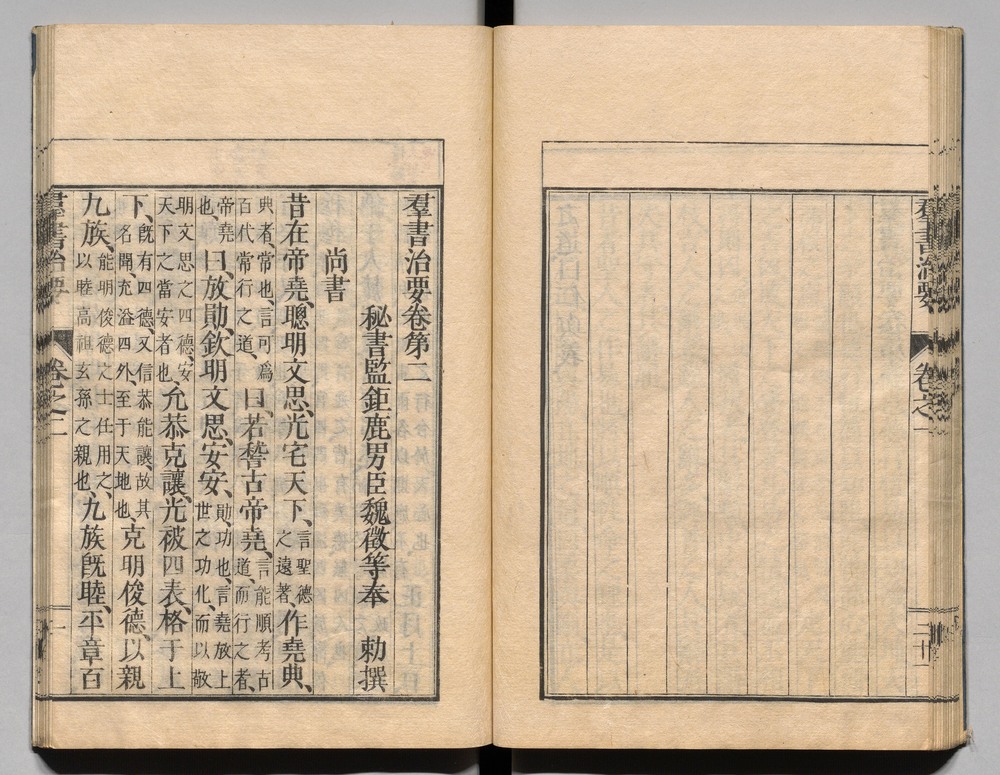 羣書治要 卷之一 二十一
羣書治要卷第二
秘書監鉅鹿男臣魏徵等奉 勅撰
尚書
昔在帝堯、聰明文思、光宅天下、言聖德之遠著、作堯典、
典者、常也、言可爲百代常行之道、曰若稽古帝堯、言能順考古道、而行之者、
帝堯也、曰放勛、欽明文思安安、勛、功也、言堯放上世之功化、而以敬
明文思之四德、安天下之當安者也、允恭克讓、光被四表、格于上
下、旣有四德、又信恭能讓、故其名聞、充溢四外、至于天地也、克明俊德、以親
九族、能明俊德之士任用之、以睦高祖玄孫之親也、九族旣睦、平章百
羣書治要 卷之二 一